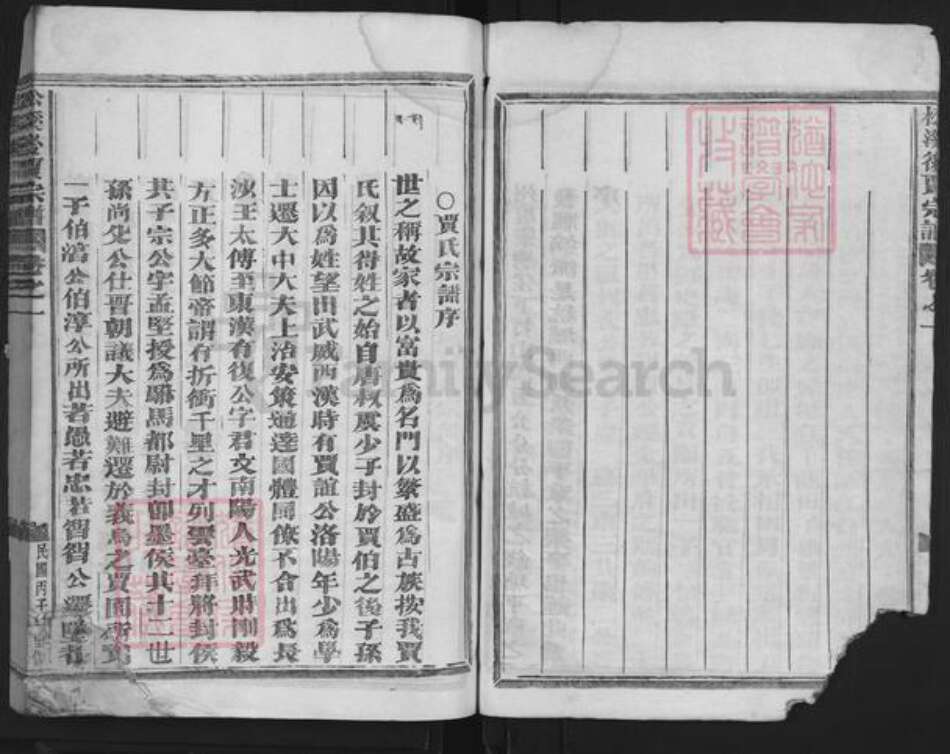 賈宗譜 卷之一
○賈氏宗譜序
世之稱故家者以富貴為名門以繁盛為古族按我賈
氏敘其得姓之始自唐叔虞少子封於賈伯之後子孫
因以為姓望出武威西漢時有賈誼公洛陽年少為學
士還大中大夫上治安策通達國體同僚不會出為長
沙王太傅至東漢有復公字君文南陽人光武時剛毅
方正多大節帝謂有折衝千里之才列雲臺拜將封侯
其子宗公字孟堅授為駙馬都尉封即墨侯其十二世
孫尚公仕晉朝議大夫避難還於義烏之賈
一子伯公伯淳公所出若愚若忠若智智公遷者
民國丙子
FamilySearch